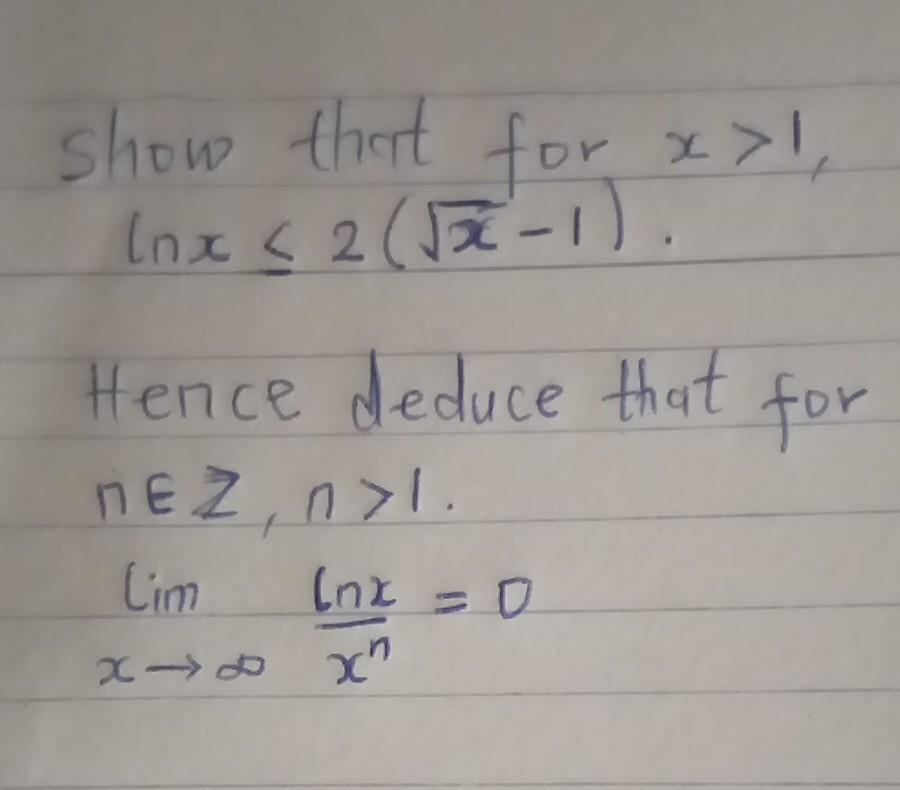 Show that for x > 1,
ln x ≤ 2(√x - 1).
Hence deduce that for
n ∈ Z, n > 1.
lim ln x / x^n = 0
x → ∞